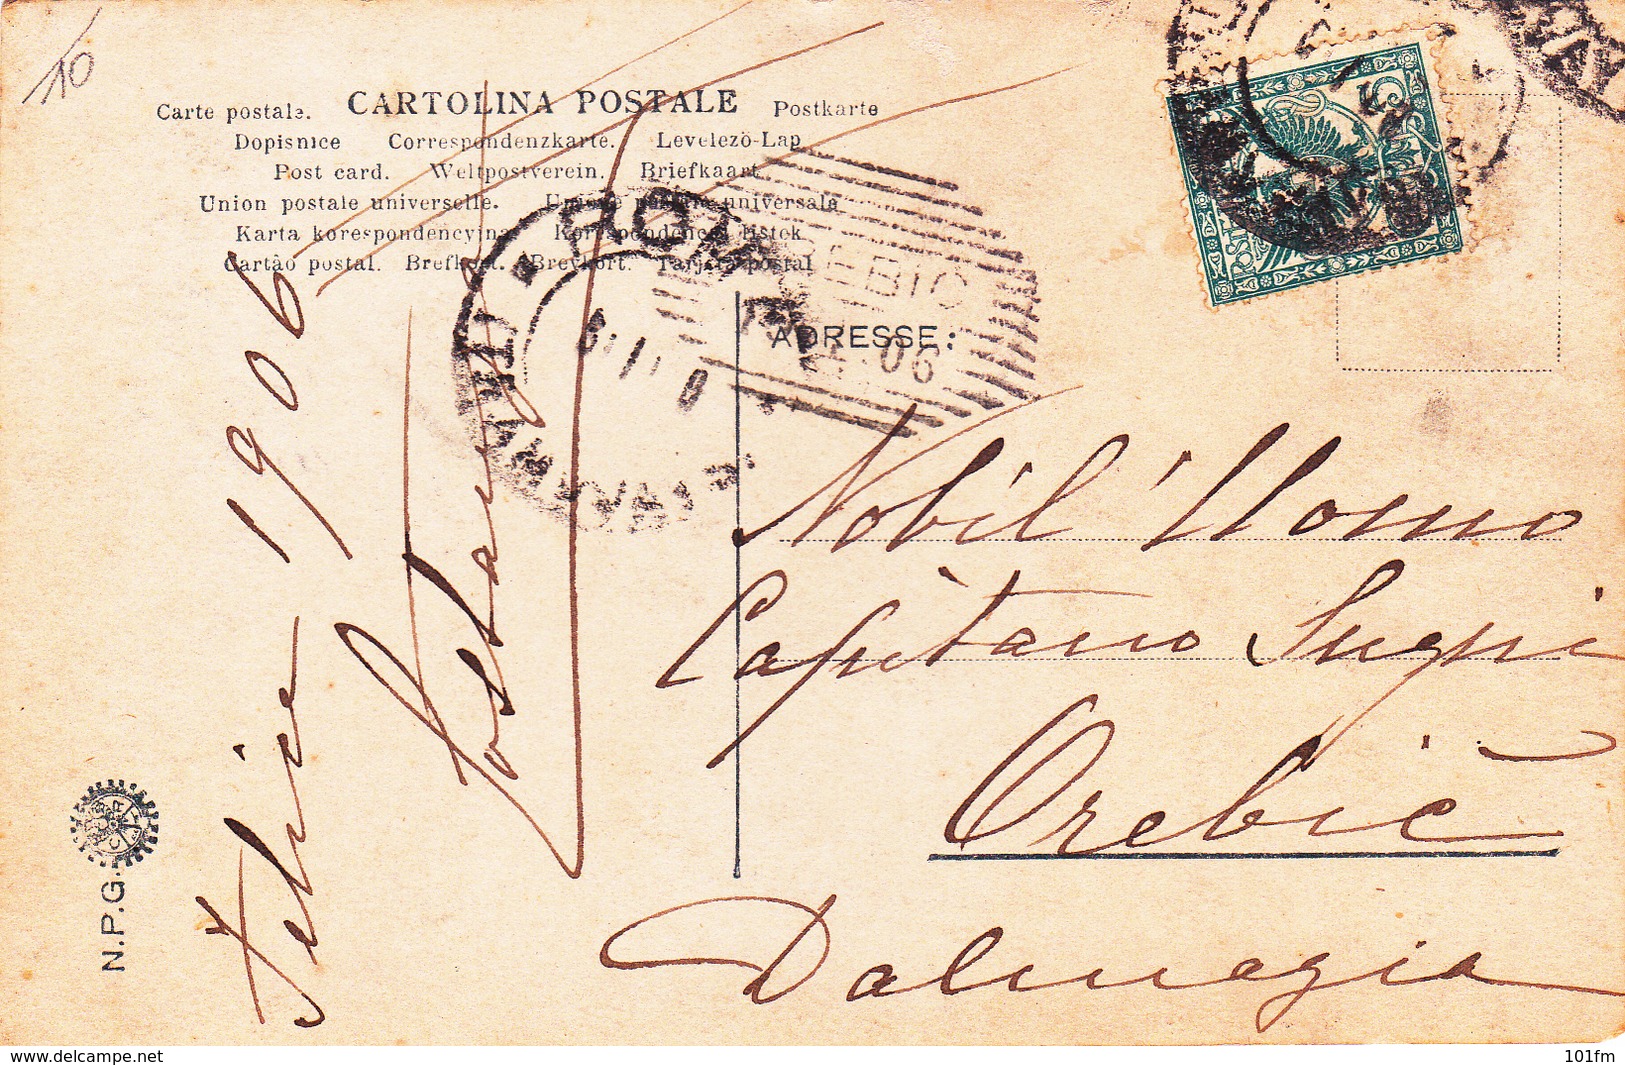 10
Carte postale. CARTOLINA POSTALE Postkarte
Dopisnice Correspondenzkarte. Levelezö-Lap
Post card. Weltpostverein. Briefkaart
Union postale universelle. Unione postale universale
Karta korespondencyjna Korespondencni listek
Cartào postal. Brefkort. Brevkort. Tarjeta postal
ROMA
REBIC
06
ADRESSE:
Nobil' Uomo
Capitano
Orebić
Dalmazia
Felice 1906
N.P.G.
delcampe.net
101fm